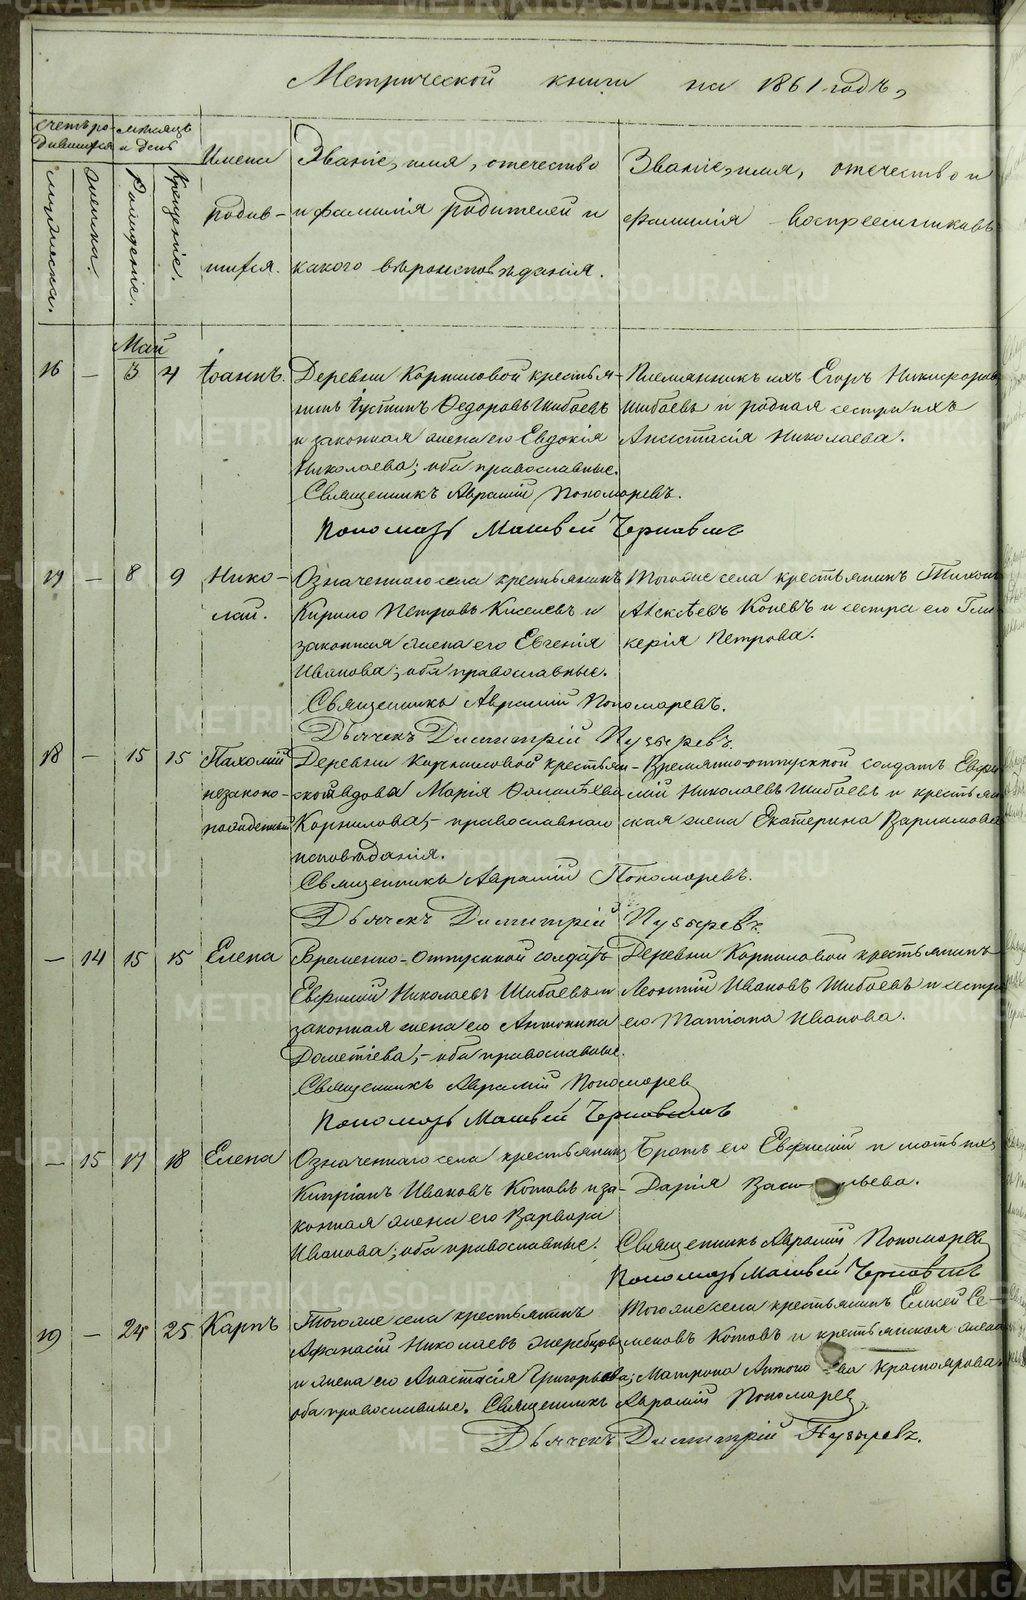 Метрической книги на 1861 годъ,
Счетъ ро- мѣсяцъ
дившихся и день
Имена Званіе, имя, отечество Званіе, имя, отечество и
мужеска. женска. Рожденіе. Крещеніе.
родив- и фамилія родителей и фамилія воспреемниковъ
шихся. какого вѣроисповѣданія.
Май
16 — 3 4 Іоаннъ. Деревни Корниловой крестья- Племянникъ ихъ Егоръ Никифоровъ
нинъ Іустинъ Ѳедоровъ Шибаевъ Шибаевъ и родная сестра ихъ
и законная жена его Евдокія Анастасія Николаева.
Николаева; оба православные.
Священникъ Авраамій Пономаревъ.
Пономарь Матвей Чернавинъ
17 — 8 9 Нико- Означеннаго села крестьянинъ Тогоже села крестьянинъ Тихонъ
лай. Кирило Петровъ Киселевъ и Алексѣевъ Коневъ и сестра его Гли-
законная жена его Евгенія керія Петрова.
Иванова; оба православные.
Священникъ Авраамій Пономаревъ.
Дьячекъ Димитрій Пузыревъ.
18 — 15 15 Пахомій Деревни Корниловой крестьян- Временно-отпускной солдатъ Евфи-
незаконо- ской вдова Марія мій Николаевъ Шибаевъ и крестьян
рожденный Корнилова, - православнаго ская жена Екатерина Варламова
исповѣданія.
Священникъ Авраамій Пономаревъ.
Дьячекъ Димитрій Пузыревъ.
— 14 15 15 Елена Временно-отпускной солдатъ Деревни Корниловой крестьянинъ
Евфимій Николаевъ Шибаевъ и Леонтій Ивановъ Шибаевъ и сестра
законная жена его Антонина его Татіана Иванова.
Дометіева, - оба православные.
Священникъ Авраамій Пономарев
Пономарь Матвей Чернавинъ
— 15 17 18 Елена Означеннаго села крестьянинъ Братъ его Евфимій и мать ихъ
Кипріанъ Ивановъ Котовъ и за- Дарія Васильева.
конная жена его Варвара
Иванова; оба православные. Священникъ Авраамій Пономарев
Пономарь Матвей Чернавинъ
19 — 24 25 Карпъ Тогоже села крестьянинъ Тогоже села крестьянинъ Елисей Се-
Афанасій Николаевъ Жеребцовъ меновъ Котовъ и крестьянская жена
и жена его Анастасія Григорьева; Матрона Антоно ва Красноярова
оба православные. Священникъ Авраамій Пономарев
Дьячекъ Димитрій Пузыревъ.
METRIKI.GASO-URAL.RU